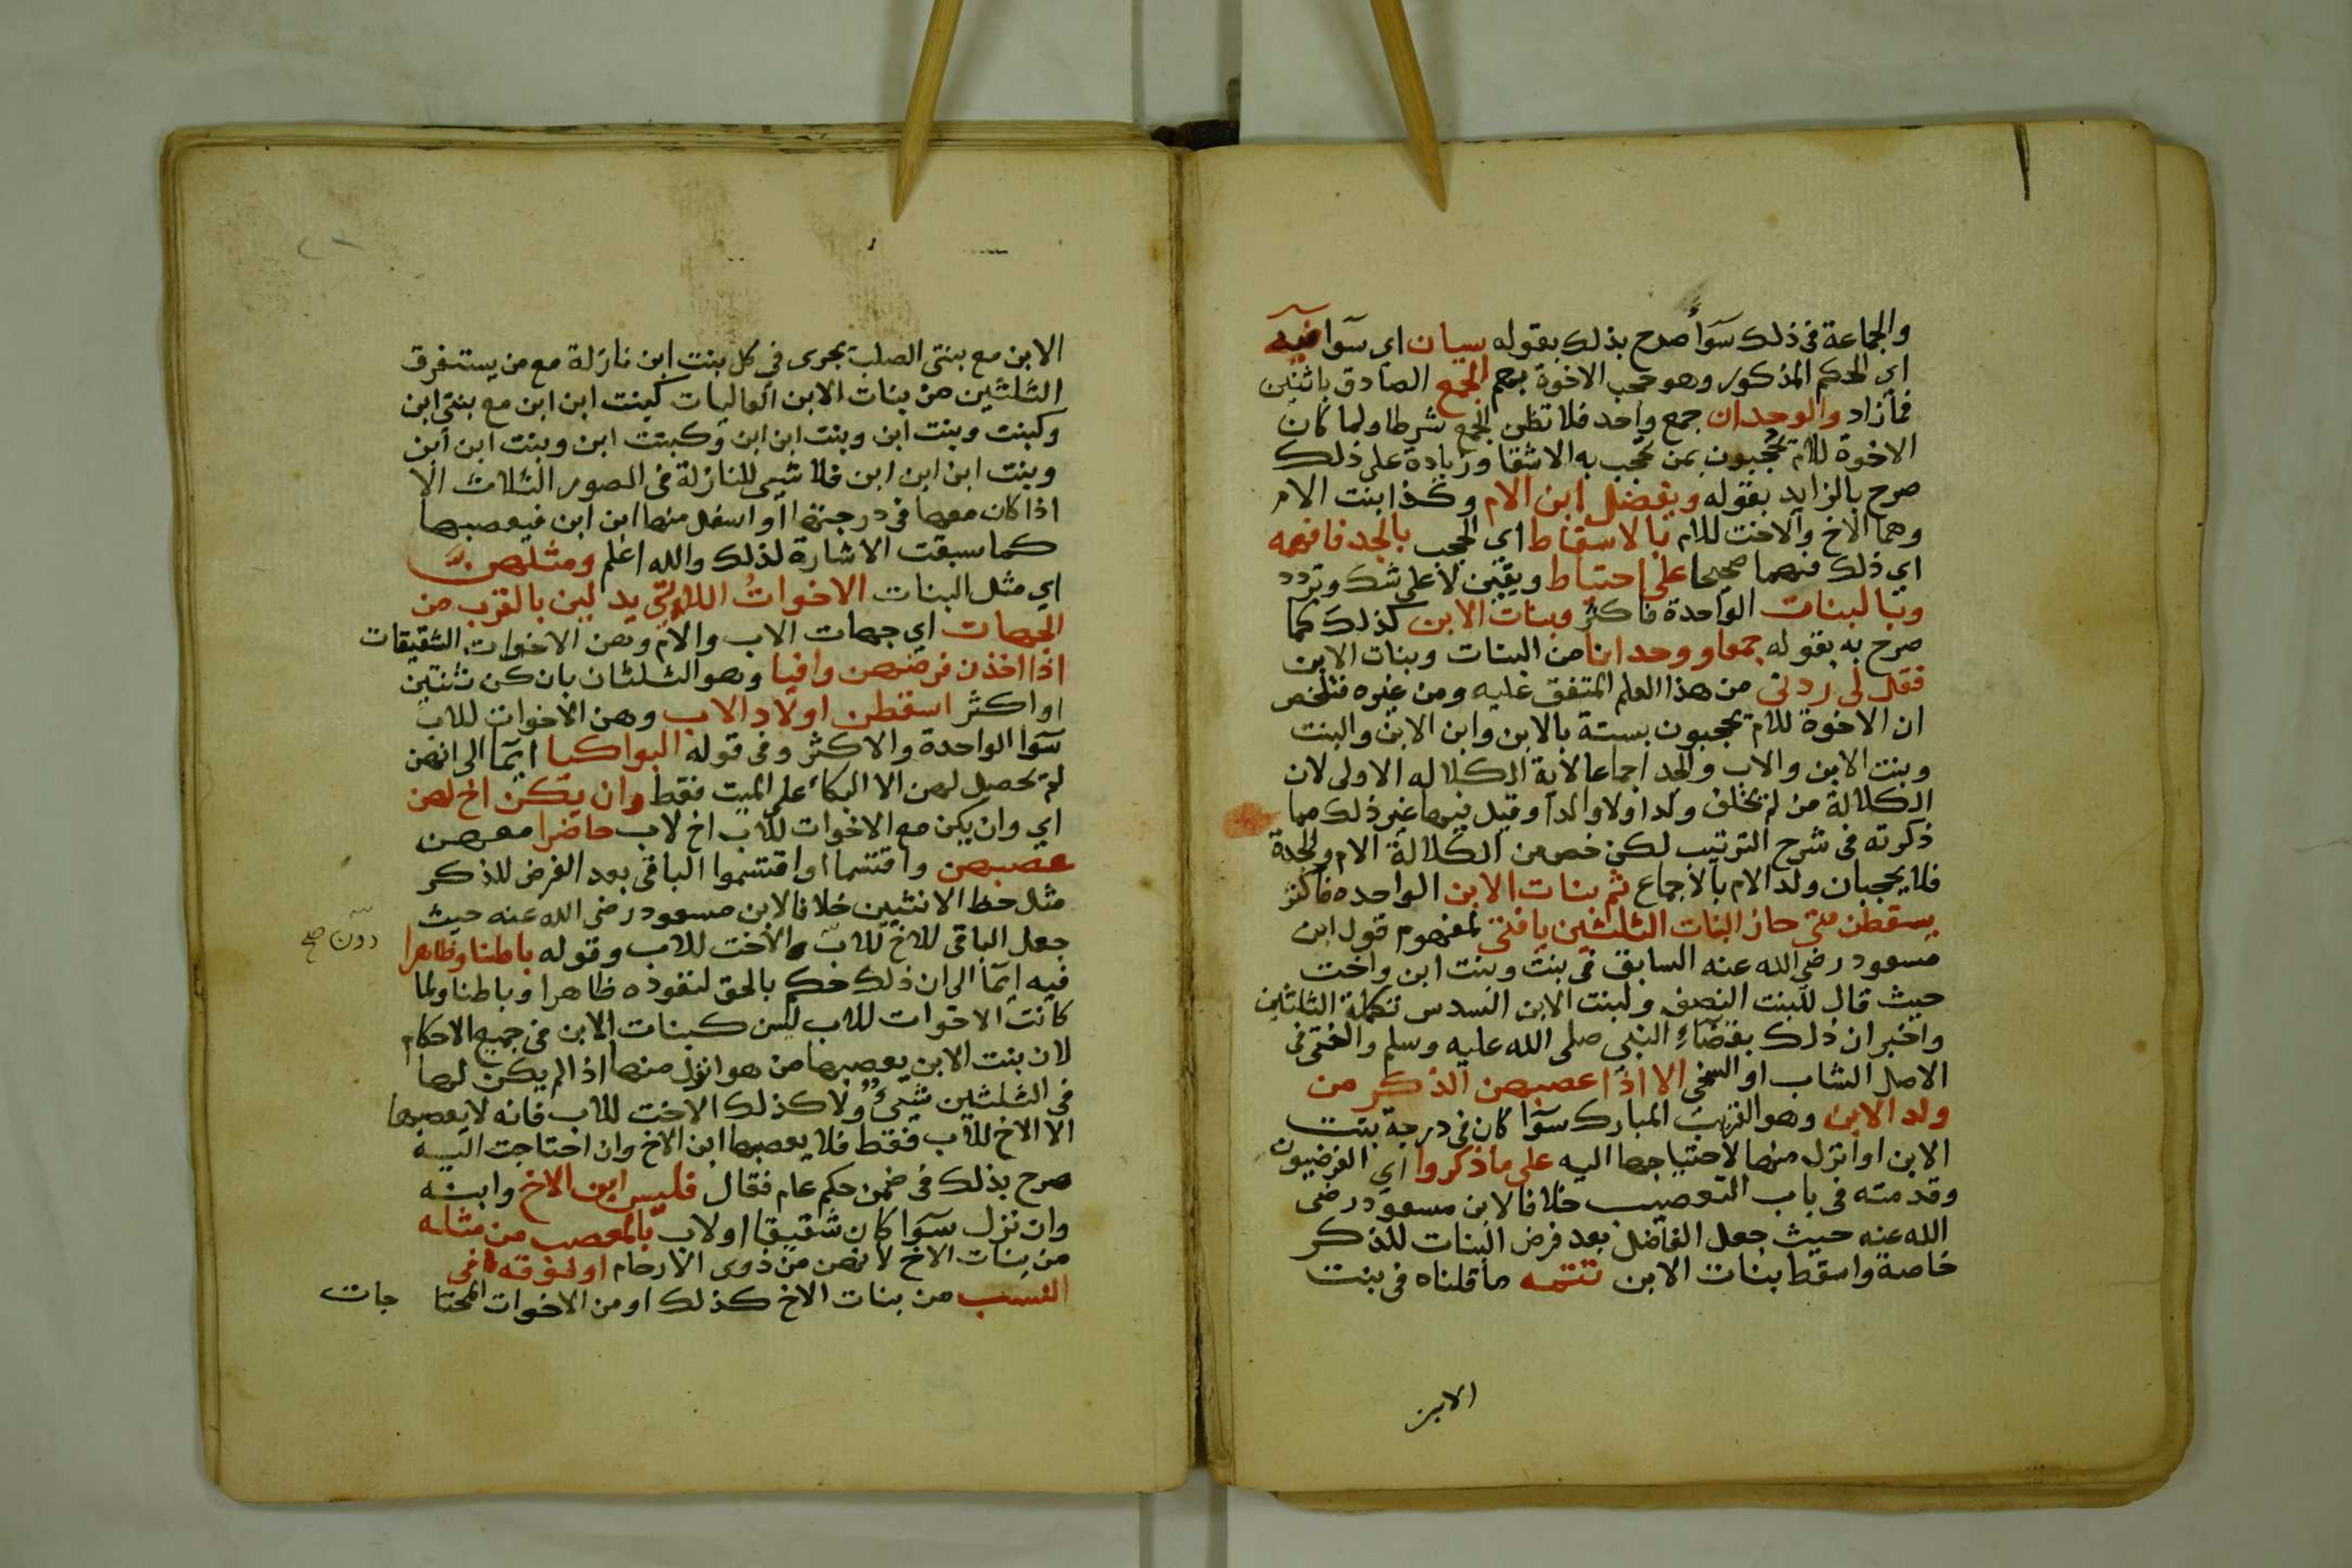 والجماعة فى ذلك سوآء صرح بذلك بقوله سيان اي سوآ فيه
اي الحكم المذكور وهو حجب الاخوة بهم الجمع الصادق باثنين
فمازاد والوحدان جمع واحد فلا تظن الجمع شرطا ولما كان
الاخوة للام يحجبون بمن تحجب به الاشقا وزيادة على ذلك
صرح بالزايد بقوله ويفضل ابن الام وكذا بنت الام
وهما الاخ والاخت للام بالاسقاط اي الحجب بالجد فافهمه
اي ذلك فهما صحيحا على احتياط ويقين لا على شك وتردد
وبالبنات الواحدة فاكثر وبنات الابن كذلك كما
صرح به بقوله جمعا ووحدانا من البنات وبنات الابن
فقل لى زدنى من هذا العلم المتفق عليه ومن غيره فتلخص
ان الاخوة للام يحجبون بستة بالابن وابن الابن والبنت
وبنت الابن والاب والجد اجماعا لاية الكلاله الاولى لان
الكلالة من لم يخلف ولدا ولا والدا وقيل فيها غير ذلك مما
ذكرته فى شرح الترتيب لكن خص من الكلالة الام والجدة
فلا يحجبان ولد الام بالاجماع ثم بنات الابن الواحده فاكثر
يسقطن متى حاز البنات الثلثين يا فتى لمفهوم قول ابن
مسعود رضى الله عنه السابق فى بنت وبنت ابن واخت
حيث قال للبنت النصف ولبنت الابن السدس تكملة الثلثين
واخبر ان ذلك بقضآء النبي صلى الله عليه وسلم والفتى فى
الاصل الشاب او السخى الا اذا عصبهن الذكر من
ولد الابن وهو القريب المبارك سوآ كان فى درجة بنت
الابن او انزل منها لاحتياجها اليه على ما ذكروا اي الفرضيون
وقدمته فى باب التعصيب خلافا لابن مسعود رضى
الله عنه حيث جعل الفاضل بعد فرض البنات للذكر
خاصة واسقط بنات الابن تتمه ما قلناه فى بنت
الابن
الابن مع بنتى الصلب يجرى فى كل بنت ابن نازلة مع من يستغرق
الثلثين من بنات الابن العاليات كبنت ابن ابن مع بنتى ابن
وكبنت وبنت ابن وبنت ابن ابن وكبنت ابن وبنت ابن ابن
وبنت ابن ابن ابن فلا شيى للنازلة فى الصور الثلاث الا
اذا كان معها فى درجتها او اسفل منها ابن ابن فيعصبها
كما سبقت الاشارة لذلك والله اعلم ومثلهن
اي مثل البنات الاخوات اللاتي يدلين بالقرب من
الجهات اي جهات الاب والام وهن الاخوات الشقيقات
اذا اخذن فرضهن وافيا وهو الثلثان بان كن ثنتين
او اكثر اسقطن اولاد الاب وهن الاخوات للاب
سوآ الواحدة والاكثر وفى قوله البواكيا ايمآ الى انهن
لم يحصل لهن الا البكاء على الميت فقط وان يكن اخ لهن
اي وان يكن مع الاخوات للاب اخ لاب حاضرا معهن
عصبهن واقتسما او اقتسموا الباقى بعد الفرض للذكر
مثل حظ الانثيين خلافا لابن مسعود رضى الله عنه حيث
جعل الباقى للاخ للاب والاخت للاب وقوله باطنا وظاهرا
دون صح
فيه ايمآ الى ان ذلك حكم بالحق لنفوذه ظاهرا وباطنا ولما
كانت الاخوات للاب ليس كبنات الابن فى جميع الاحكام
لان بنت الابن يعصبها من هو انزل منها اذا لم يكن لها
فى الثلثين شيئ ولا كذلك الاخت للاب فانه لا يعصبها
الا الاخ للاب فقط فلا يعصبها ابن الاخ وان احتاجت اليه
صرح بذلك فى ضمن حكم عام فقال فليس ابن الاخ وابنه
وان نزل سوآ كان شقيقا او لاب بالمعصب من مثله
من بنات الاخ لانهن من ذوى الارحام او فوقه فى
النسب من بنات الاخ كذلك او من الاخوات المحتا جات